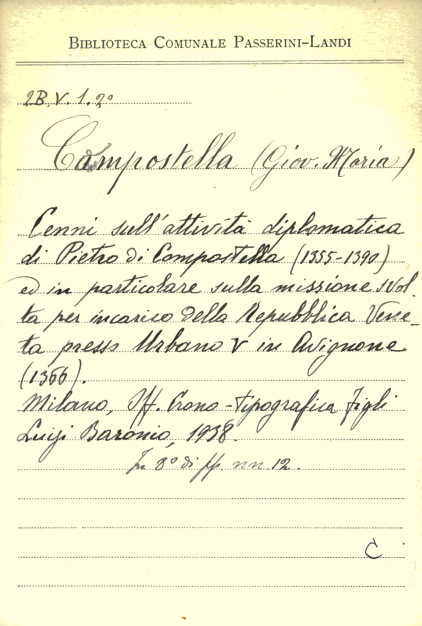 BIBLIOTECA COMUNALE PASSERINI-LANDI
2B.V.1.2°
Compostella (Giov. Maria)
Cenni sull'attività diplomatica
di Pietro di Compostella (1355-1390)
ed in particolare sulla missione svol-
ta per incarico della Repubblica Vene-
ta presso Urbano V in Avignone
(1366).
Milano, Off. Crono-tipografica Figli
Luigi Baronio, 1938.
In 8° di pp. nn 12.
C